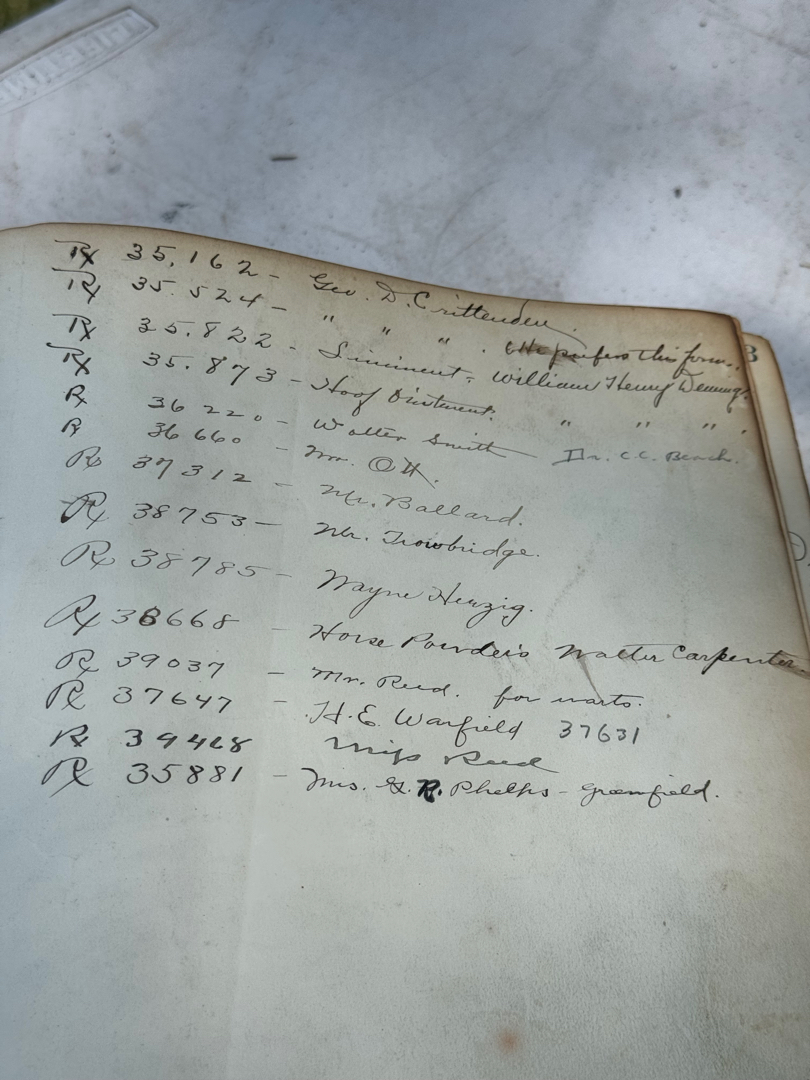 LIFETIME
Rx 35,162 - Geo. D. Crittenden
Rx 35.524 - " " " . (He prefers this form.)
Rx 35.822 - Liniment, William Henry Deming.
Rx 35.873 - Hoof Ointment. " " " .
Rx 36220 - Walter Smith - Dr. C.C. Beach.
Rx 36660 - Mr. Ott.
Rx 37312 - Mr. Ballard.
Rx 38753 - Mr. Trowbridge.
Rx 38785 - Wayne Herzig.
Rx 38668 - Horse Powders Walter Carpenter.
Rx 39037 - Mr. Reed. for warts.
Rx 37647 - H.E. Warfield 37631
Rx 39468 Miss Reed
Rx 35881 - Mrs. G. R. Phelps - Greenfield.
3